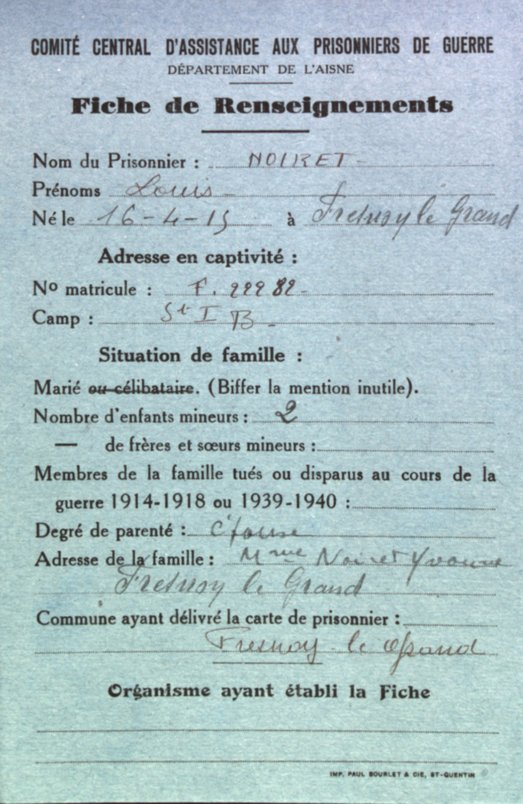 COMITÉ CENTRAL D'ASSISTANCE AUX PRISONNIERS DE GUERRE
DÉPARTEMENT DE L'AISNE
Fiche de Renseignements
Nom du Prisonnier : NOIRET
Prénoms Louis
Né le 16-4-15 à Fresnoy le Grand
Adresse en captivité :
No matricule : F. 22282
Camp : St I B
Situation de famille :
Marié ou célibataire. (Biffer la mention inutile).
Nombre d'enfants mineurs : 2
— de frères et sœurs mineurs :
Membres de la famille tués ou disparus au cours de la
guerre 1914-1918 ou 1939-1940 :
Degré de parenté : Epouse
Adresse de la famille : Mme Noiret Yvonne
Fresnoy le Grand
Commune ayant délivré la carte de prisonnier :
Fresnoy le Grand
Organisme ayant établi la Fiche
IMP. PAUL BOURLET & CIE, ST-QUENTIN